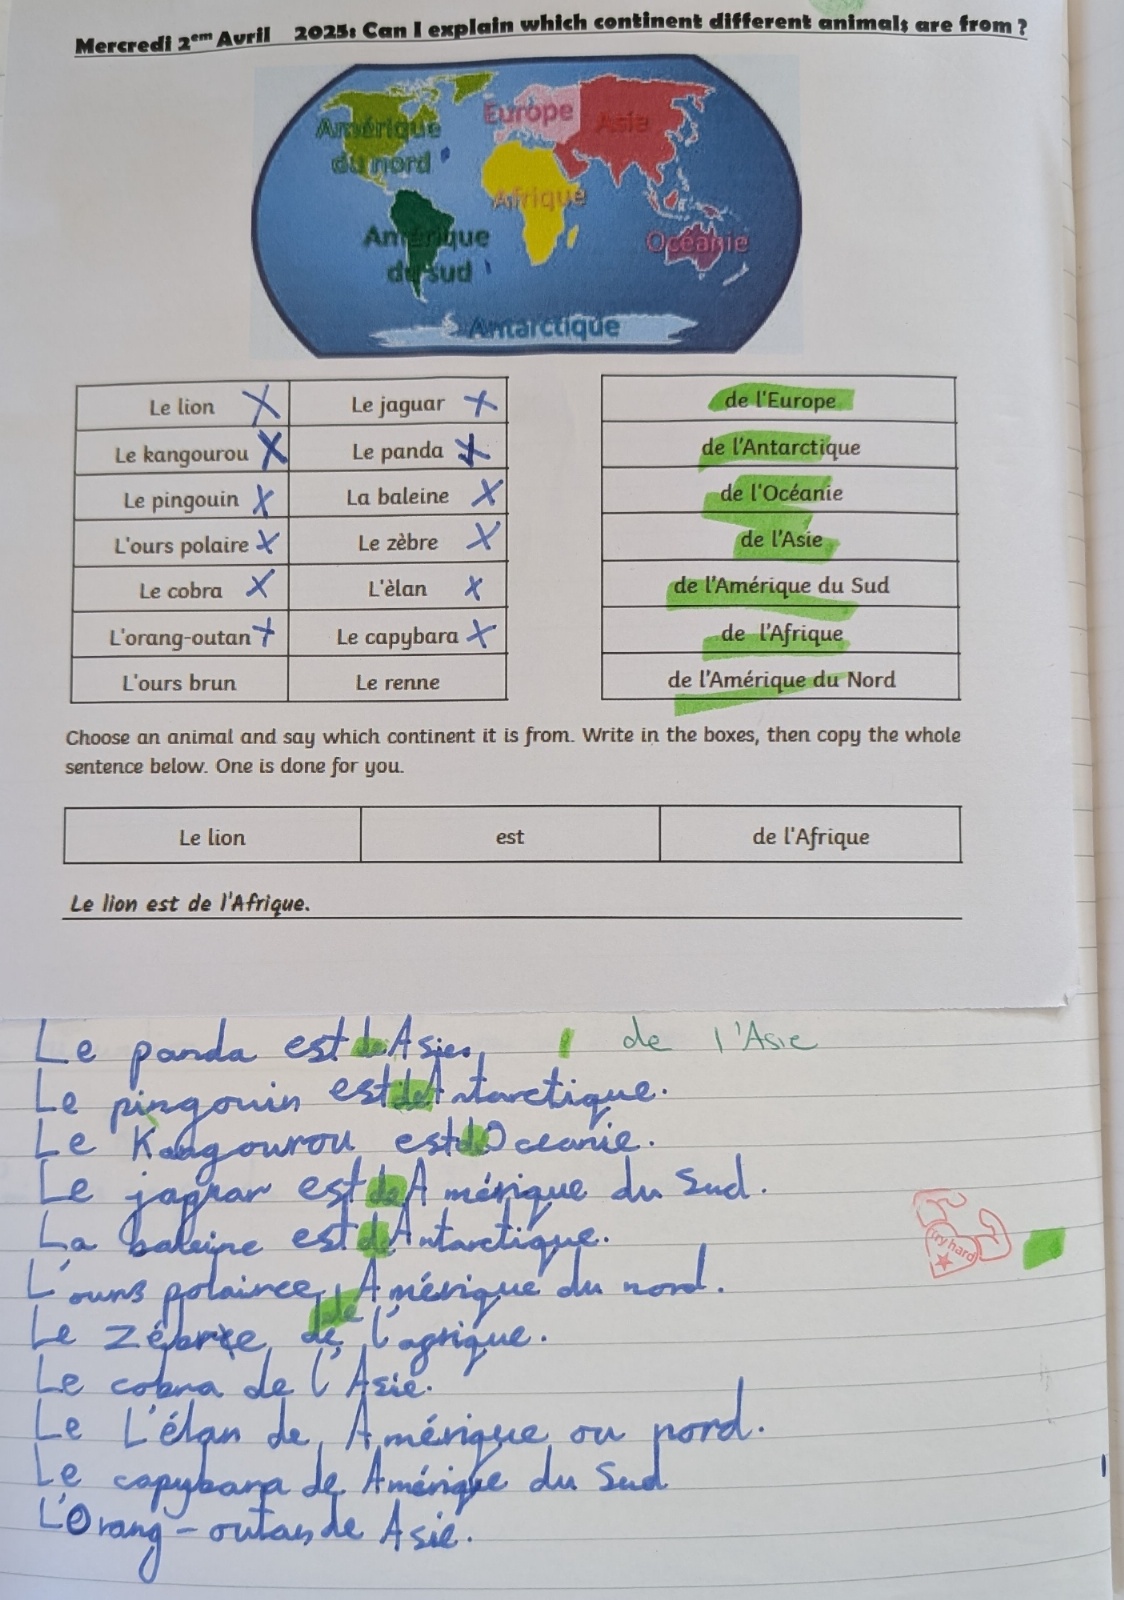 Mercredi 2em Avril 2025: Can I explain which continent different animals are from ?
Amérique du nord
Europe
Asie
Afrique
Amérique du sud
Océanie
Antarctique
Le lion X Le jaguar X
Le kangourou X Le panda X
Le pingouin X La baleine X
L'ours polaire X Le zèbre X
Le cobra X L'èlan X
L'orang-outan X Le capybara X
L'ours brun Le renne
de l'Europe
de l'Antarctique
de l'Océanie
de l'Asie
de l'Amérique du Sud
de l'Afrique
de l'Amérique du Nord
Choose an animal and say which continent it is from. Write in the boxes, then copy the whole
sentence below. One is done for you.
Le lion est de l'Afrique
Le lion est de l'Afrique.
Le panda est de Asie. de l'Asie
Le pingouin est de Antarctique.
Le est Oceanie.
Le est de Amérique du Sud.
La baleine est de Antarctique.
L'ours Amérique du nord.
try hard
Le de l'afrique.
Le cobra de l'Asie.
Le L'élan de Amérique ou nord.
Le capybara de Amérique du Sud
L'Orang-outan de Asie.